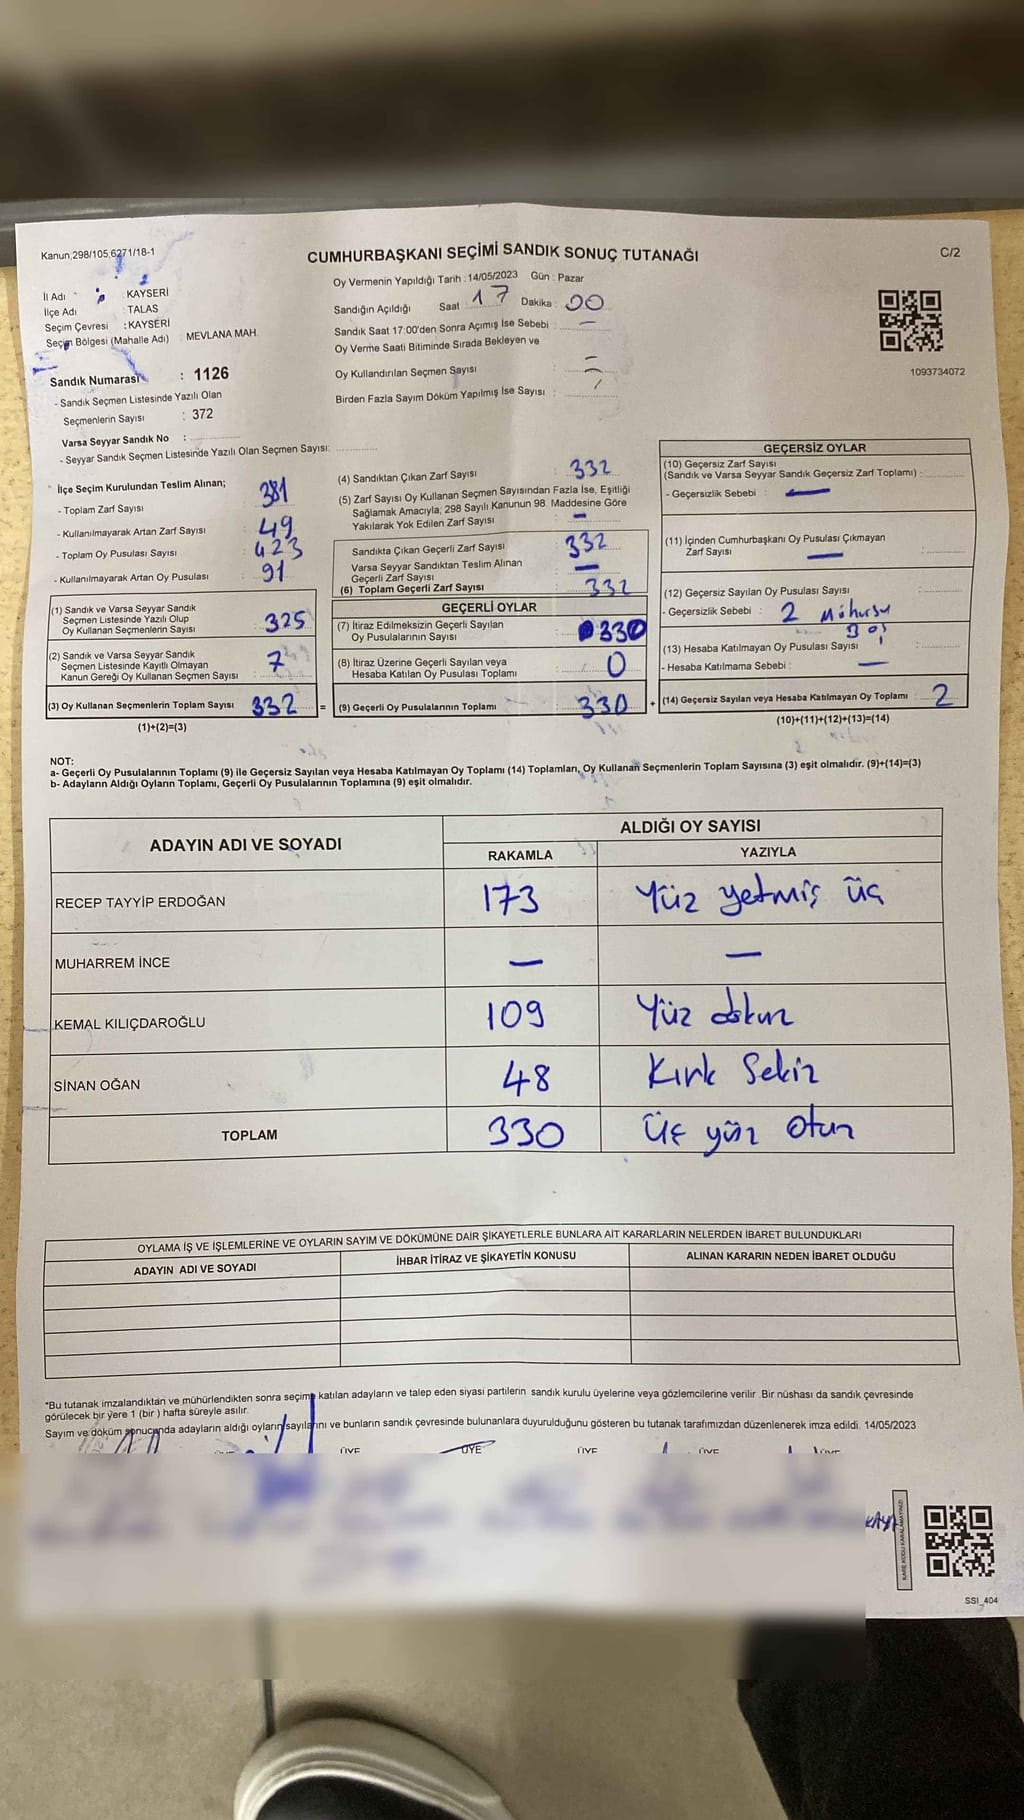 Kanun,298/105,6271/18-1
CUMHURBAŞKANI SEÇİMİ SANDIK SONUÇ TUTANAĞI
C/2
İl Adı : KAYSERİ
İlçe Adı : TALAS
Seçim Çevresi : KAYSERİ
Seçim Bölgesi (Mahalle Adı) : MEVLANA MAH.
Sandık Numarası : 1126
- Sandık Seçmen Listesinde Yazılı Olan
Seçmenlerin Sayısı : 372
Varsa Seyyar Sandık No :
- Seyyar Sandık Seçmen Listesinde Yazılı Olan Seçmen Sayısı:
Oy Vermenin Yapıldığı Tarih : 14/05/2023 Gün : Pazar
Sandığın Açıldığı Saat : 17 Dakika : 00
Sandık Saat 17:00'den Sonra Açımış İse Sebebi : —
Oy Verme Saati Bitiminde Sırada Bekleyen ve
Oy Kullandırılan Seçmen Sayısı :
Birden Fazla Sayım Döküm Yapılmış İse Sayısı :
1093734072
İlçe Seçim Kurulundan Teslim Alınan;
- Toplam Zarf Sayısı : 381
- Kullanılmayarak Artan Zarf Sayısı : 49
- Toplam Oy Pusulası Sayısı : 423
- Kullanılmayarak Artan Oy Pusulası : 91
(1) Sandık ve Varsa Seyyar Sandık
Seçmen Listesinde Yazılı Olup
Oy Kullanan Seçmenlerin Sayısı 325
(2) Sandık ve Varsa Seyyar Sandık
Seçmen Listesinde Kayıtlı Olmayan
Kanun Gereği Oy Kullanan Seçmen Sayısı 7
(3) Oy Kullanan Seçmenlerin Toplam Sayısı 332 =
(1)+(2)=(3)
(4) Sandıktan Çıkan Zarf Sayısı : 332
(5) Zarf Sayısı Oy Kullanan Seçmen Sayısından Fazla İse, Eşitliği
Sağlamak Amacıyla; 298 Sayılı Kanunun 98. Maddesine Göre
Yakılarak Yok Edilen Zarf Sayısı : —
Sandıkta Çıkan Geçerli Zarf Sayısı : 332
Varsa Seyyar Sandıktan Teslim Alınan
Geçerli Zarf Sayısı : —
(6) Toplam Geçerli Zarf Sayısı : 332
GEÇERLİ OYLAR
(7) İtiraz Edilmeksizin Geçerli Sayılan
Oy Pusulalarının Sayısı 330
(8) İtiraz Üzerine Geçerli Sayılan veya
Hesaba Katılan Oy Pusulası Toplamı : 0
(9) Geçerli Oy Pusulalarının Toplamı : 330 +
GEÇERSİZ OYLAR
(10) Geçersiz Zarf Sayısı
(Sandık ve Varsa Seyyar Sandık Geçersiz Zarf Toplamı) :
- Geçersizlik Sebebi : —
(11) İçinden Cumhurbaşkanı Oy Pusulası Çıkmayan
Zarf Sayısı — :
(12) Geçersiz Sayılan Oy Pusulası Sayısı :
- Geçersizlik Sebebi : 2 Mühürsü
(13) Hesaba Katılmayan Oy Pusulası Sayısı :
- Hesaba Katılmama Sebebi : —
(14) Geçersiz Sayılan veya Hesaba Katılmayan Oy Toplamı : 2
(10)+(11)+(12)+(13)=(14)
NOT:
a- Geçerli Oy Pusulalarının Toplamı (9) ile Geçersiz Sayılan veya Hesaba Katılmayan Oy Toplamı (14) Toplamları, Oy Kullanan Seçmenlerin Toplam Sayısına (3) eşit olmalıdır. (9)+(14)=(3)
b- Adayların Aldığı Oyların Toplamı, Geçerli Oy Pusulalarının Toplamına (9) eşit olmalıdır.
ADAYIN ADI VE SOYADI ALDIĞI OY SAYISI
RAKAMLA YAZIYLA
RECEP TAYYİP ERDOĞAN 173 Yüz yetmiş üç
MUHARREM İNCE — —
KEMAL KILIÇDAROĞLU 109 Yüz dokuz
SİNAN OĞAN 48 Kırk Sekiz
TOPLAM 330 Üç yüz otuz
OYLAMA İŞ VE İŞLEMLERİNE VE OYLARIN SAYIM VE DÖKÜMÜNE DAİR ŞİKAYETLERLE BUNLARA AİT KARARLARIN NELERDEN İBARET BULUNDUKLARI
ADAYIN ADI VE SOYADI İHBAR İTİRAZ VE ŞİKAYETİN KONUSU ALINAN KARARIN NEDEN İBARET OLDUĞU
*Bu tutanak imzalandıktan ve mühürlendikten sonra seçime katılan adayların ve talep eden siyasi partilerin sandık kurulu üyelerine veya gözlemcilerine verilir .Bir nüshası da sandık çevresinde
görülecek bir yere 1 (bir ) hafta süreyle asılır.
Sayım ve döküm sonucunda adayların aldığı oyların sayılarını ve bunların sandık çevresinde bulunanlara duyurulduğunu gösteren bu tutanak tarafımızdan düzenlenerek imza edildi. 14/05/2023
ÜYE ÜYE ÜYE ÜYE
KARE KODU KARALAMAYINIZ!
SSI_404